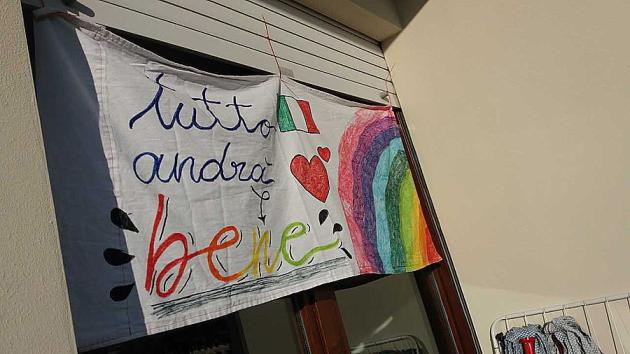 tutto
andrà
bene